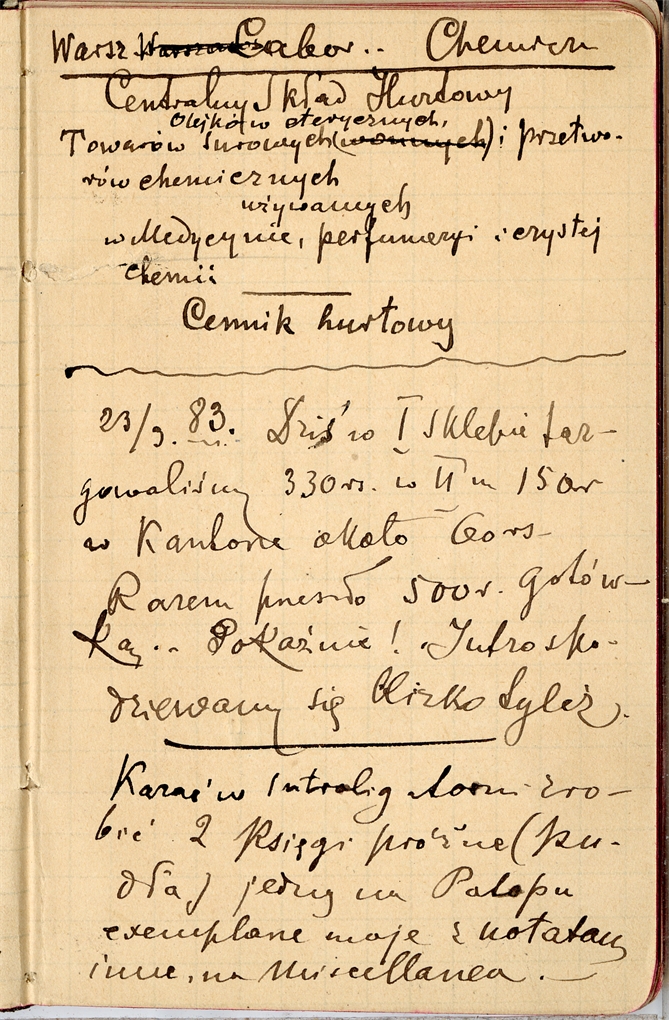 Warsz Labor.. Chemiczn
Centralny Skład Hurtowy
Olejków eterycznych,
Towarów Surowych (wonnych) i przetwo-
rów chemicznych
używanych
w Medycynie, perfumeryi i czystej
chemii
Cennik hurtowy
23/9. 83. Dziś w I Sklepie tar-
gowaliśmy 330rs. w II m 150r
w Kantorze około 60rs-
Razem przeszło 500r. gotów-
ką.. Pokaźnie! Jutro spo-
dziewamy się blizko tyleż.
Kazać w introligatorni zro-
bić 2 Księgi próżne (pu-
dła) jedną na
exemplarze moje z notatami
inne, na Miscellanea.